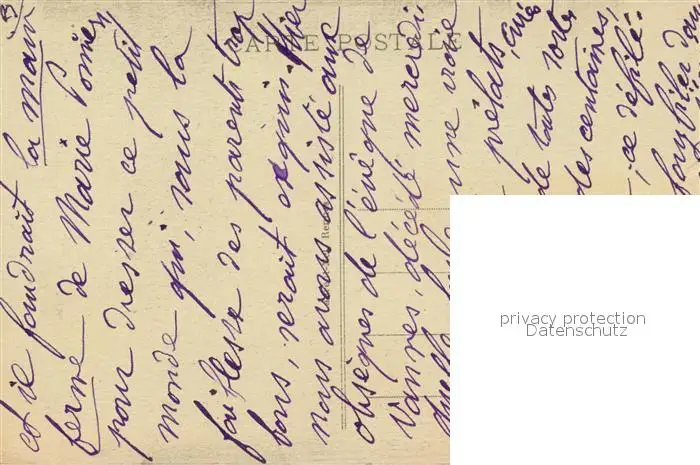 3
et il faudrait la main
ferme de Marie
pour dresser ce petit
monde qui, sous la
faiblesse des parents trop
bons, serait enquiquinant. Hier
nous avons assisté aux
obsèques de l'évêque de
Vannes, décédé mercredi
une vraie
prélats, curés
de toutes sortes
des centaines,
, ce défilé.
CARTE POSTALE
privacy protection
Datenschutz